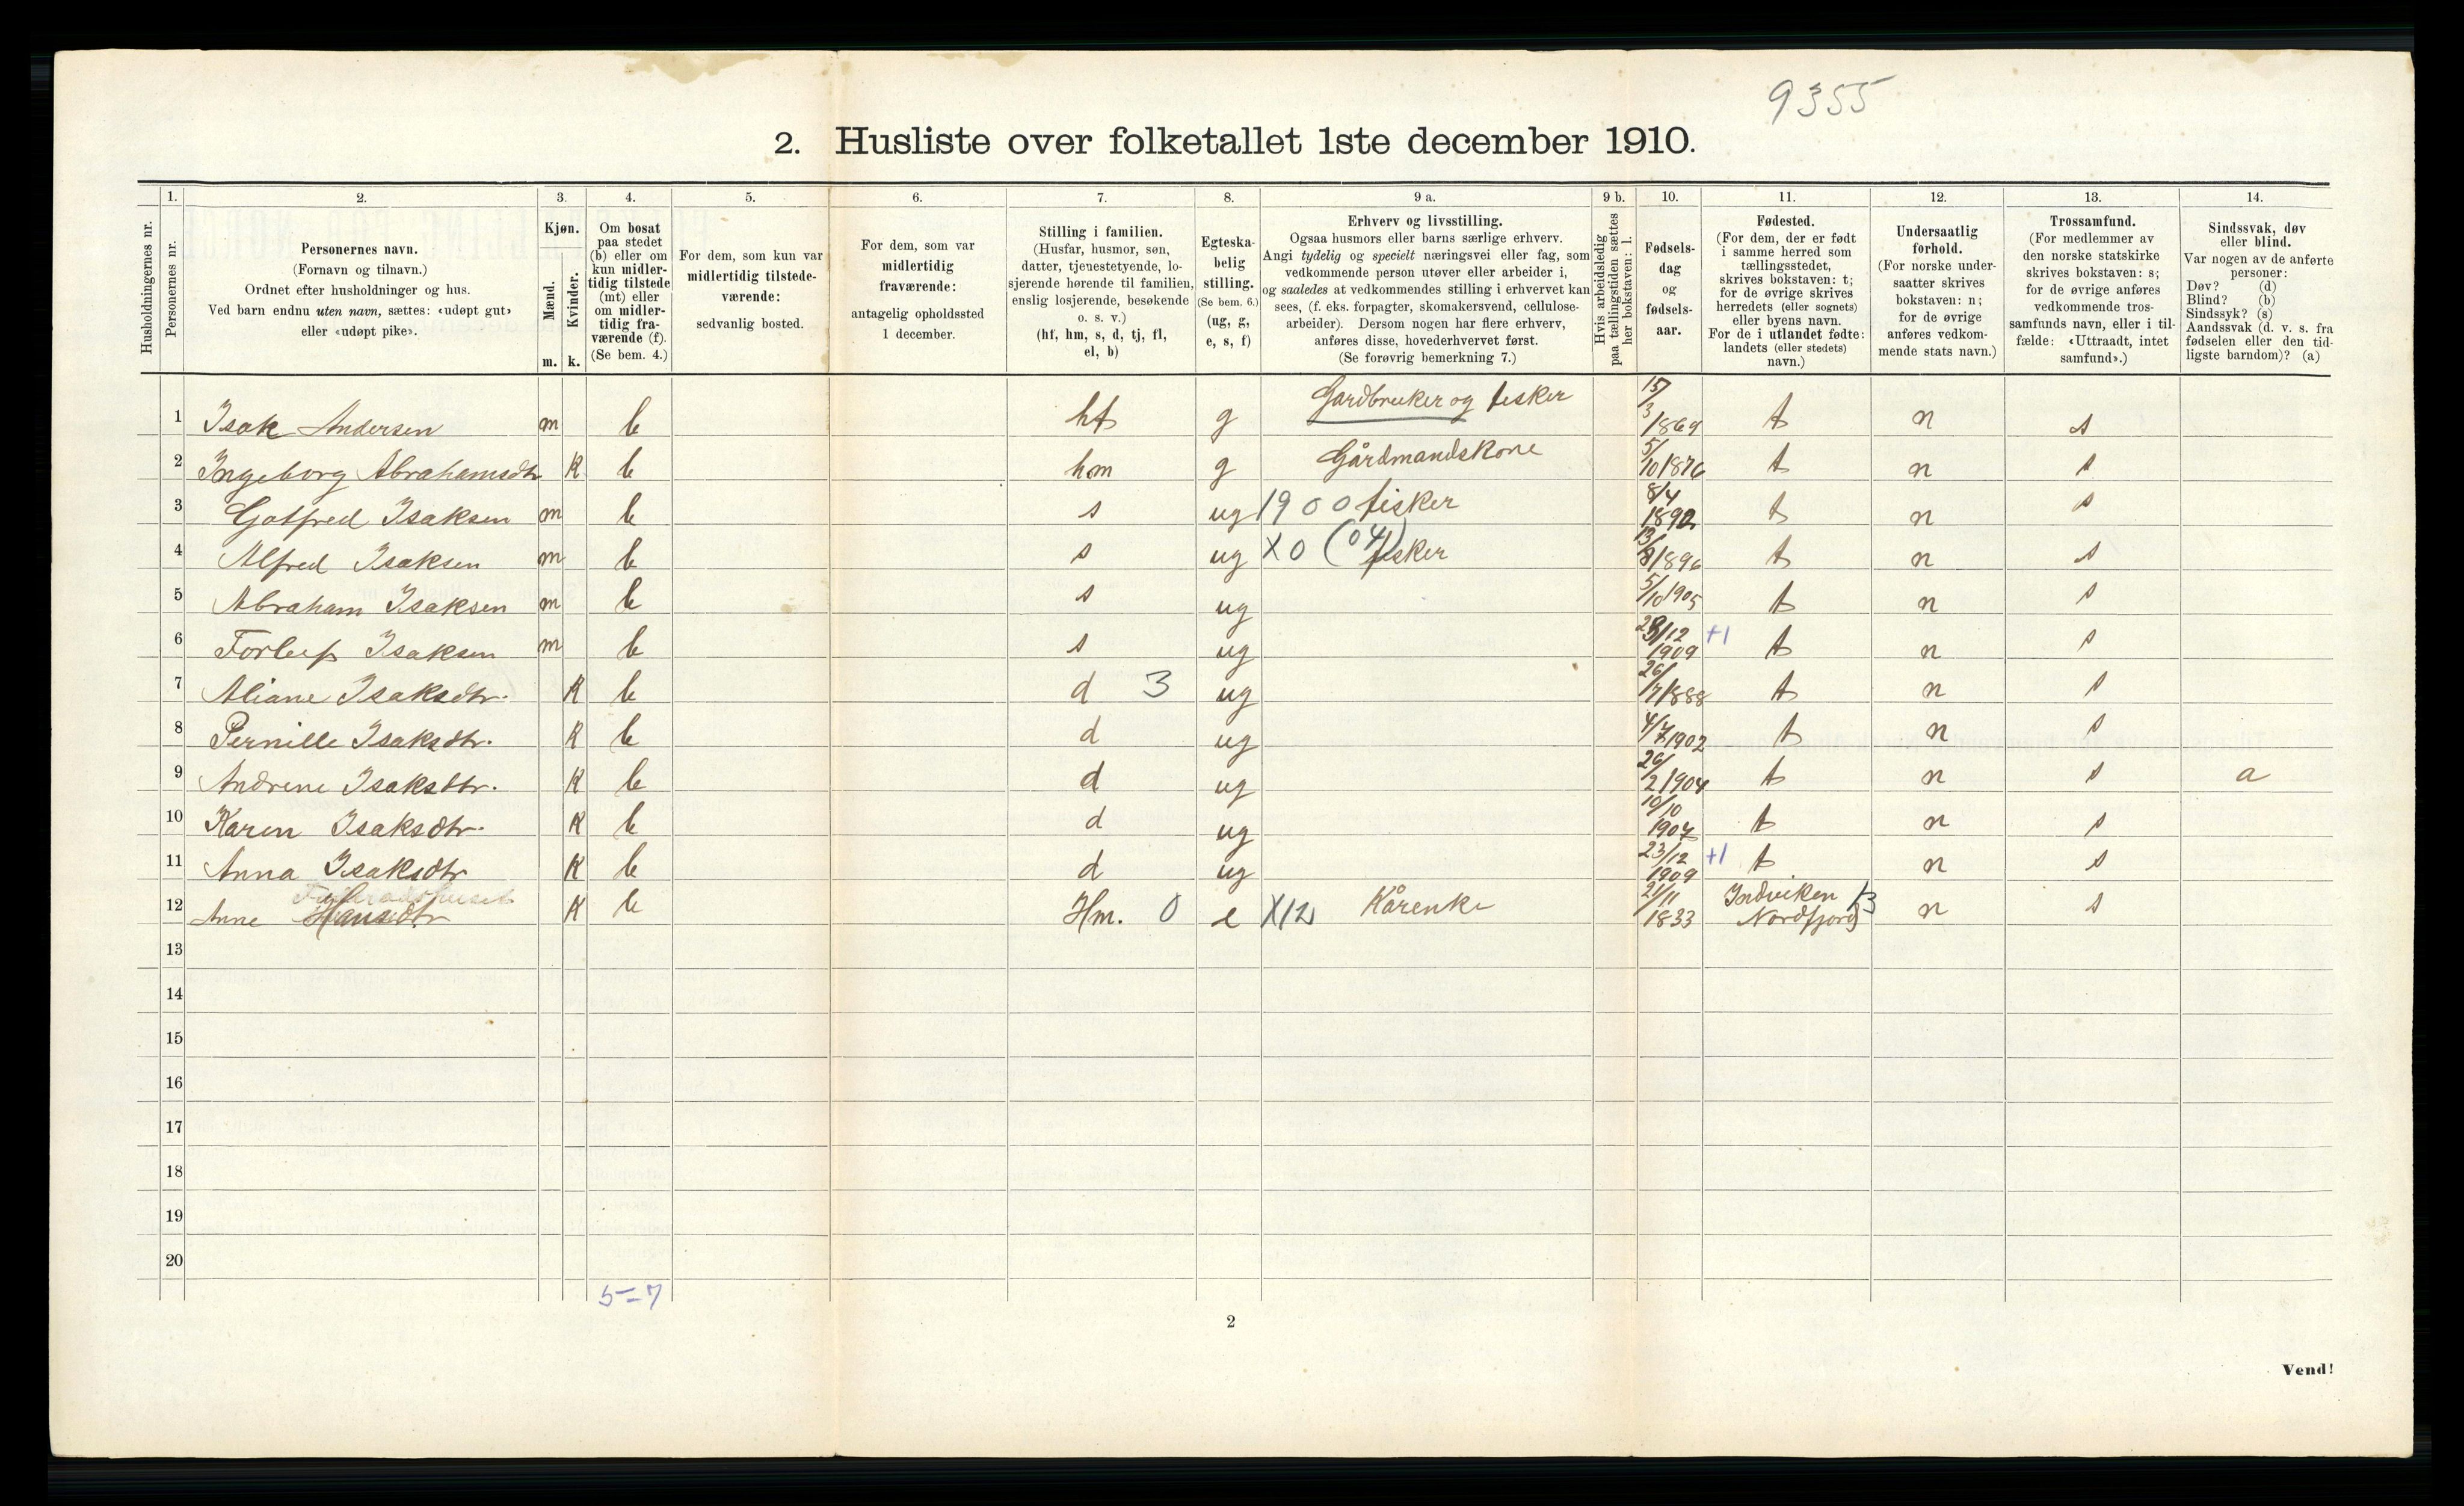 9355
2. Husliste over folketallet 1ste december 1910.
Husholdningernes nr.
1. Personernes nr.
2. Personernes navn.
(Fornavn og tilnavn.)
Ordnet efter husholdninger og hus.
Ved barn endnu uten navn, sættes: «udøpt gut»
eller «udøpt pike».
3. Kjøn.
Mænd. m.
Kvinder. k.
4. Om bosat
paa stedet
(b) eller om
kun midler-
tidig tilstede
(mt) eller
om midler-
tidig fra-
værende (f).
(Se bem. 4.)
5. For dem, som kun var
midlertidig tilstede-
værende:
sedvanlig bosted.
6. For dem, som var
midlertidig
fraværende:
antagelig opholdssted
1 december.
7. Stilling i familien.
(Husfar, husmor, søn,
datter, tjenestetyende, lo-
sjerende hørende til familien,
enslig losjerende, besøkende
o. s. v.)
(hf, hm, s, d, tj, fl,
el, b)
8. Egteska-
belig
stilling.
(Se bem. 6.)
(ug, g,
e, s, f)
9 a. Erhverv og livsstilling.
Ogsaa husmors eller barns særlige erhverv.
Angi tydelig og specielt næringsvei eller fag, som
vedkommende person utøver eller arbeider i,
og saaledes at vedkommendes stilling i erhvervet kan
sees, (f. eks. forpagter, skomakersvend, cellulose-
arbeider). Dersom nogen har flere erhverv,
anføres disse, hovederhvervet først.
(Se forøvrig bemerkning 7.)
9 b. Hvis arbeidsledig
paa tællingstiden sættes
her bokstaven: l.
10. Fødsels-
dag
og
fødsels-
aar.
11. Fødested.
(For dem, der er født
i samme herred som
tællingsstedet,
skrives bokstaven: t;
for de øvrige skrives
herredets (eller sognets)
eller byens navn.
For de i utlandet fødte:
landets (eller stedets)
navn.)
12. Undersaatlig
forhold.
(For norske under-
saatter skrives
bokstaven: n;
for de øvrige
anføres vedkom-
mende stats navn.)
13. Trossamfund.
(For medlemmer av
den norske statskirke
skrives bokstaven: s;
for de øvrige anføres
vedkommende tros-
samfunds navn, eller i til-
fælde: «Uttraadt, intet
samfund».)
14. Sindssvak, døv
eller blind.
Var nogen av de anførte
personer:
Døv? (d)
Blind? (b)
Sindssyk? (s)
Aandssvak (d. v. s. fra
fødselen eller den tid-
ligste barndom)? (a)
1 Isak Andersen m b hf g Gardbruker og fisker 15/3 1869 t n s
2 Ingeborg Abrahamsdtr K b hm g Gårdmandskone 5/10 1876 t n s
3 Gotfred Isaksen m b s ug 1900 fisker 8/4 1892 t n s
4 Alfred Isaksen m b s ug X0 (04) fisker 13/8 1896 t n s
5 Abraham Isaksen m b s ug 5/10 1905 t n s
6 Torleif Isaksen m b s ug /12 1909 +1 t n s
7 Aliane Isaksdtr. K b d 3 ug 26/7 1888 t n s
8 Pernille Isaksdtr. K b d ug 4/7 1902 t n s
9 Andrene Isaksdtr. K b d ug 26/2 1904 t n s a
10 Karen Isaksdtr. K b d ug 10/10 1907 t n s
11 Anna Isaksdtr K b d ug 23/12 1909 +1 t n s
12 Anne Hansdtr K b Hm. 0 e X12 Kårenke 21/11 1833 Indviken Nordfjord 13 n s
13
14
15
16
17
18
19
20
5=7
2
Vend!